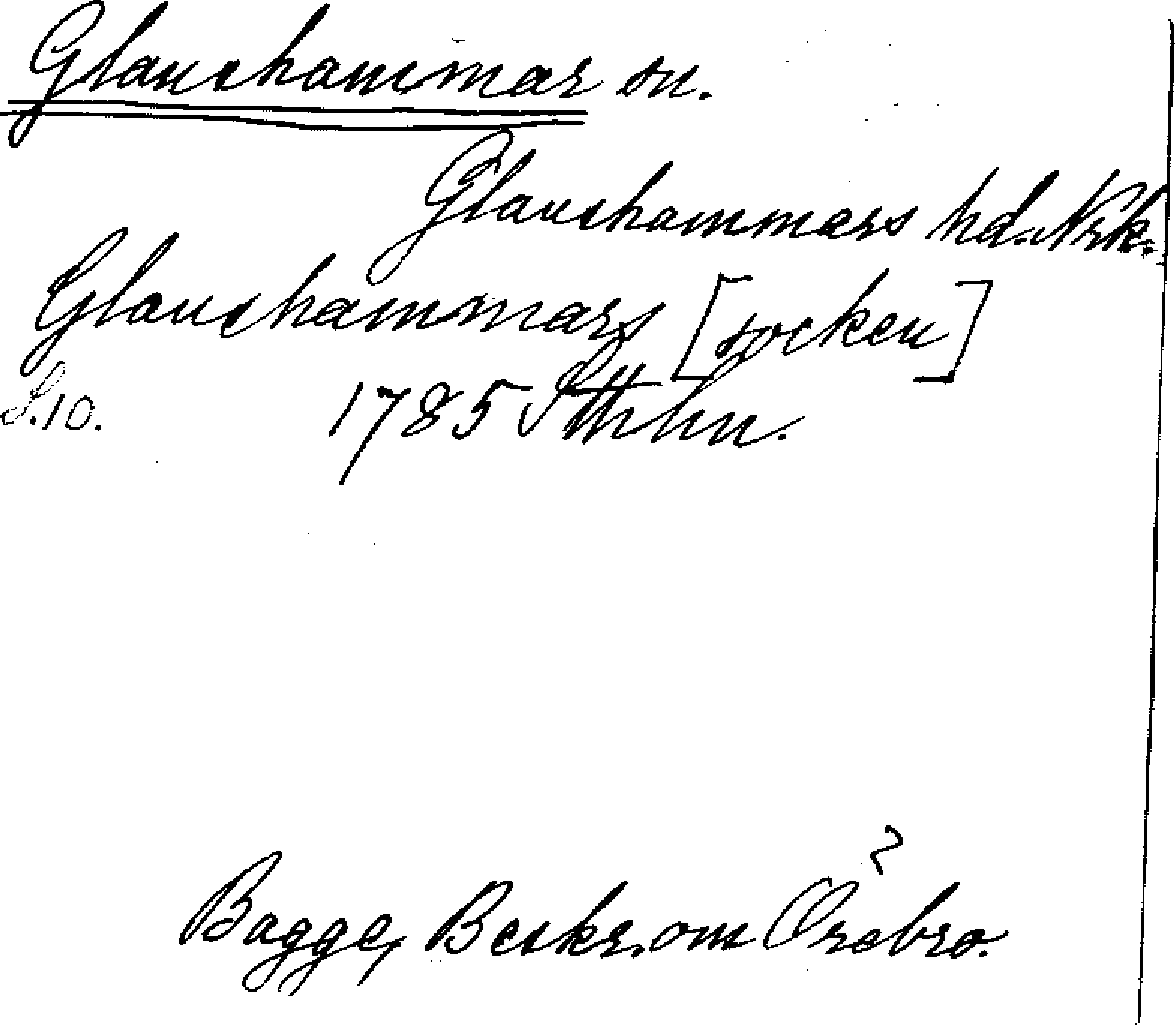 Glanshammar sn.
Glanshammars hd. Nrk.
Glanshammars [socken]
S.10. 1785 Sthlm.
Bagge, Beskr. om Örebro.